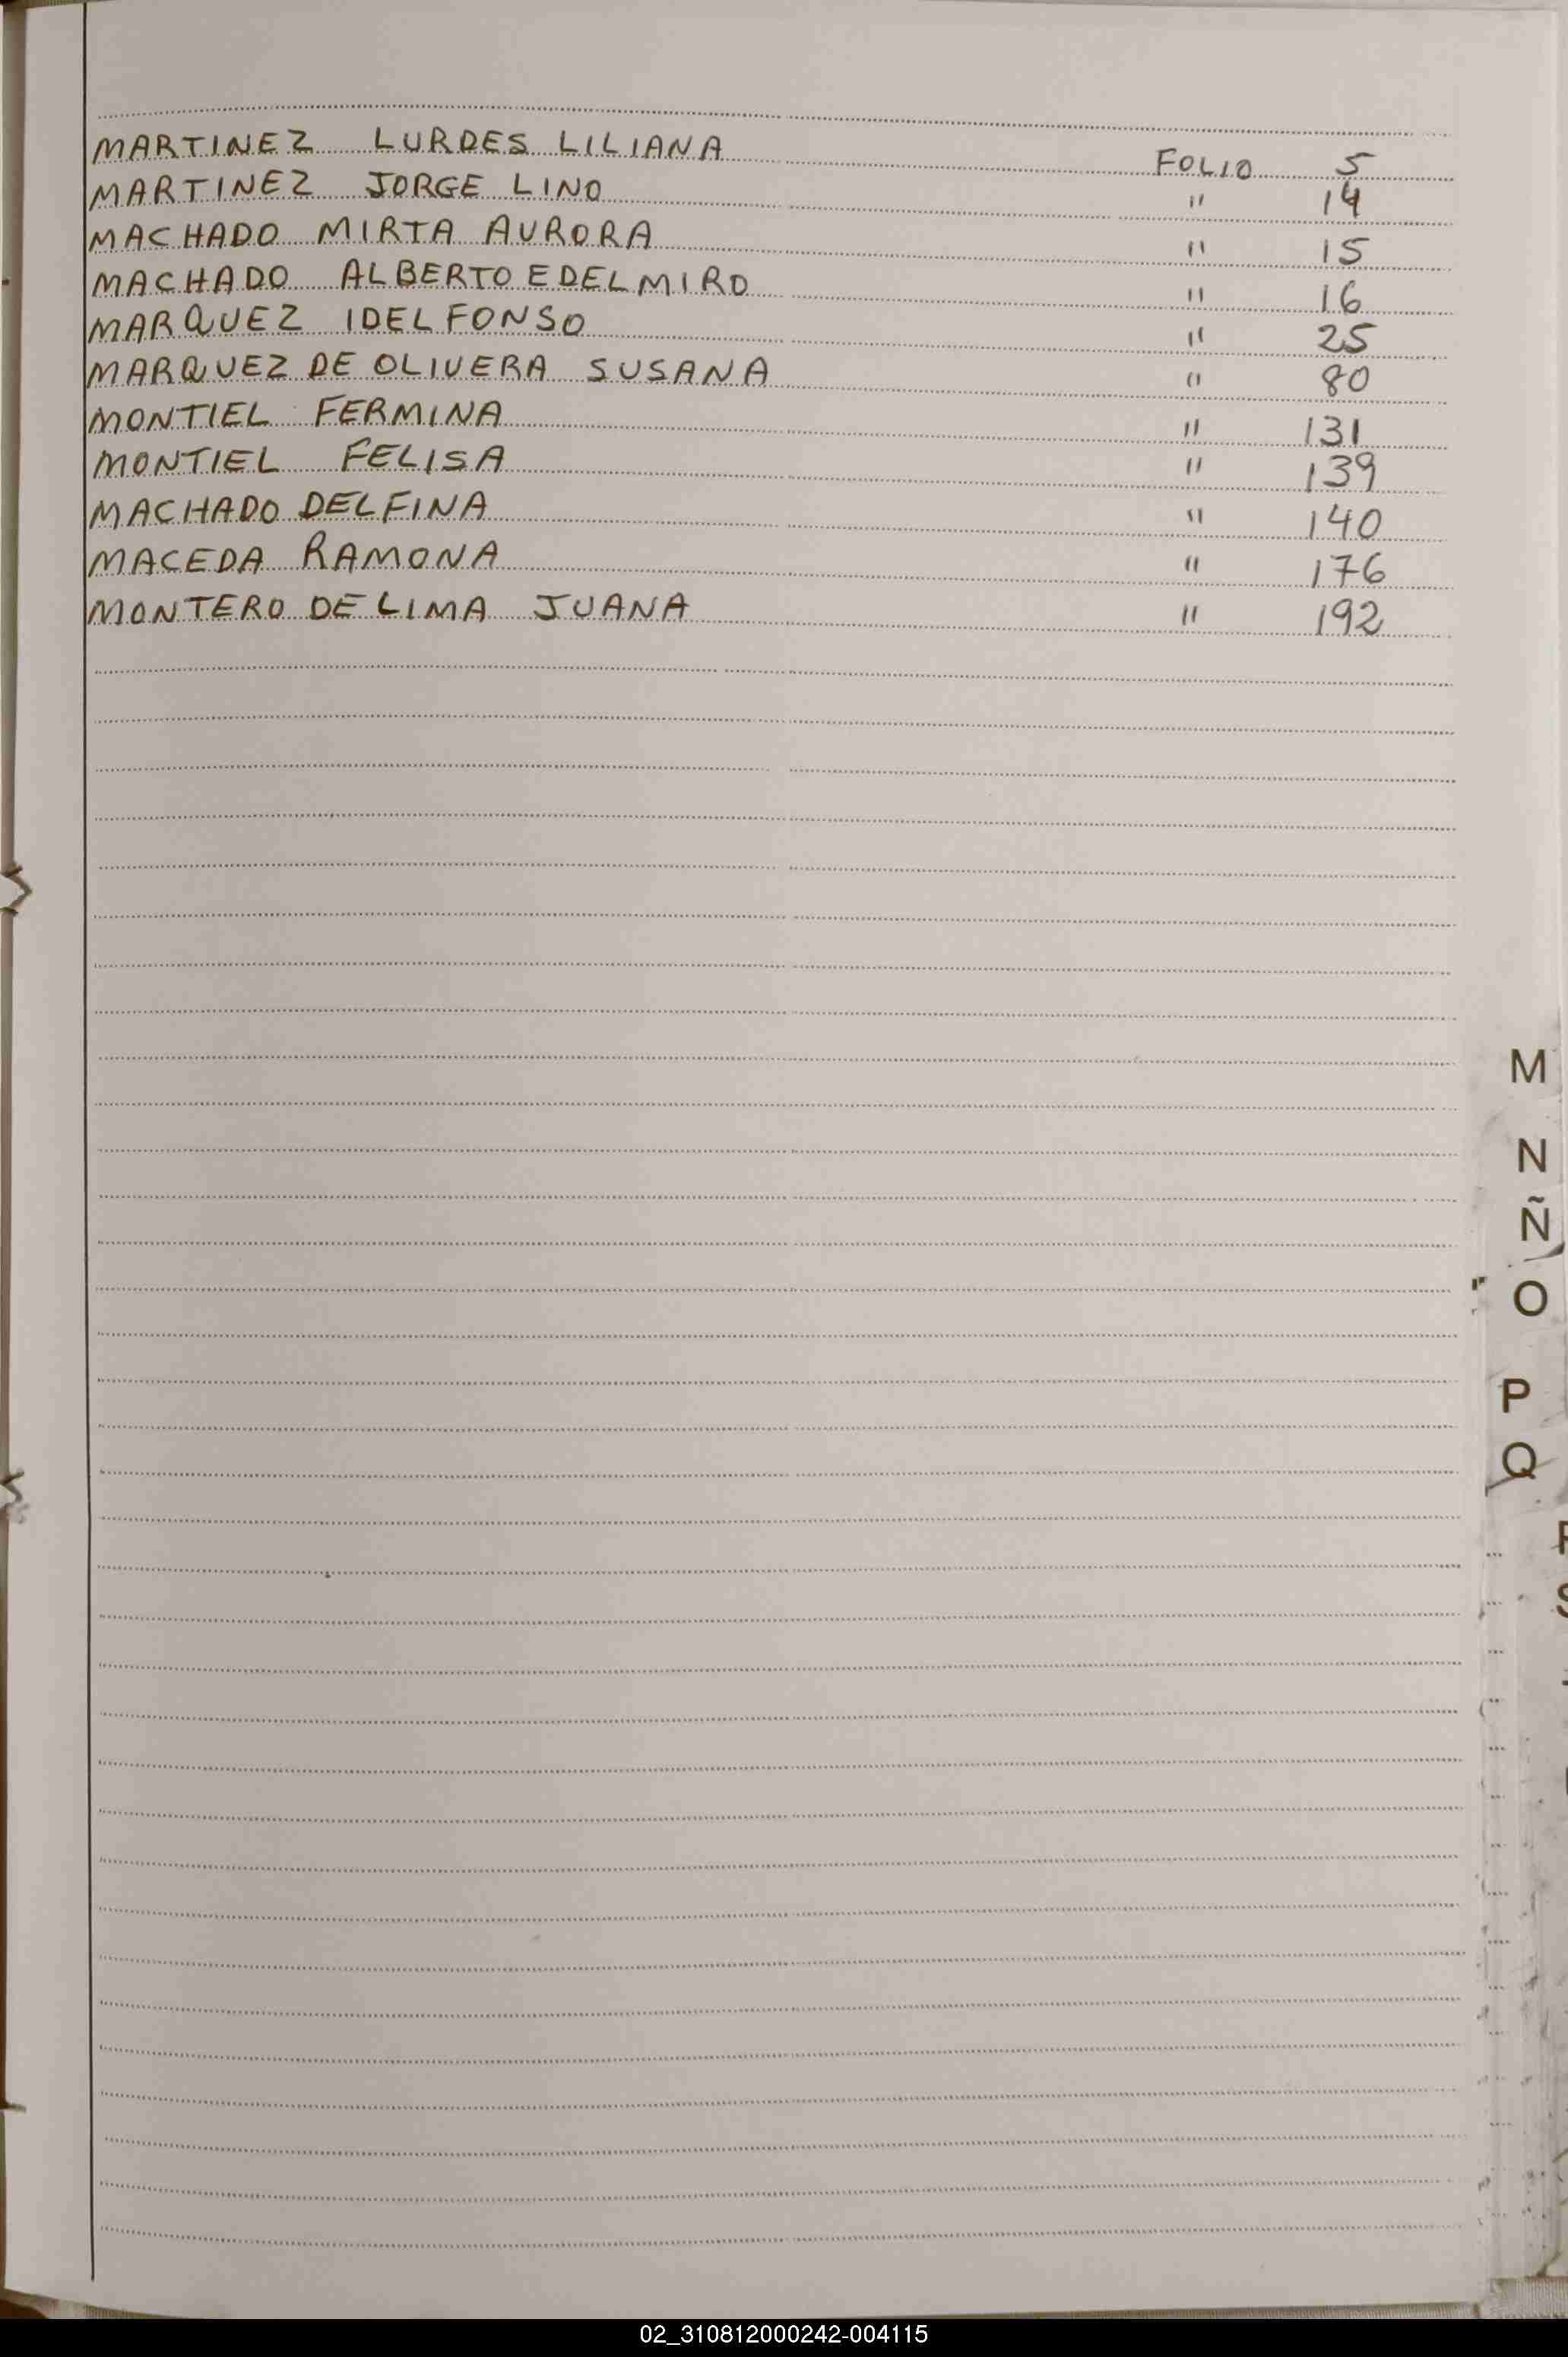 MARTINEZ LURDES LILIANA FOLIO 5
MARTINEZ JORGE LINO " 14
MACHADO MIRTA AURORA " 15
MACHADO ALBERTO EDELMIRO " 16
MARQUEZ IDELFONSO " 25
MARQUEZ DE OLIVERA SUSANA " 80
MONTIEL FERMINA " 131
MONTIEL FELISA " 139
MACHADO DELFINA " 140
MACEDA RAMONA " 176
MONTERO DE LIMA JUANA " 192
M
N
Ñ
O
P
Q
S
02_310812000242-004115